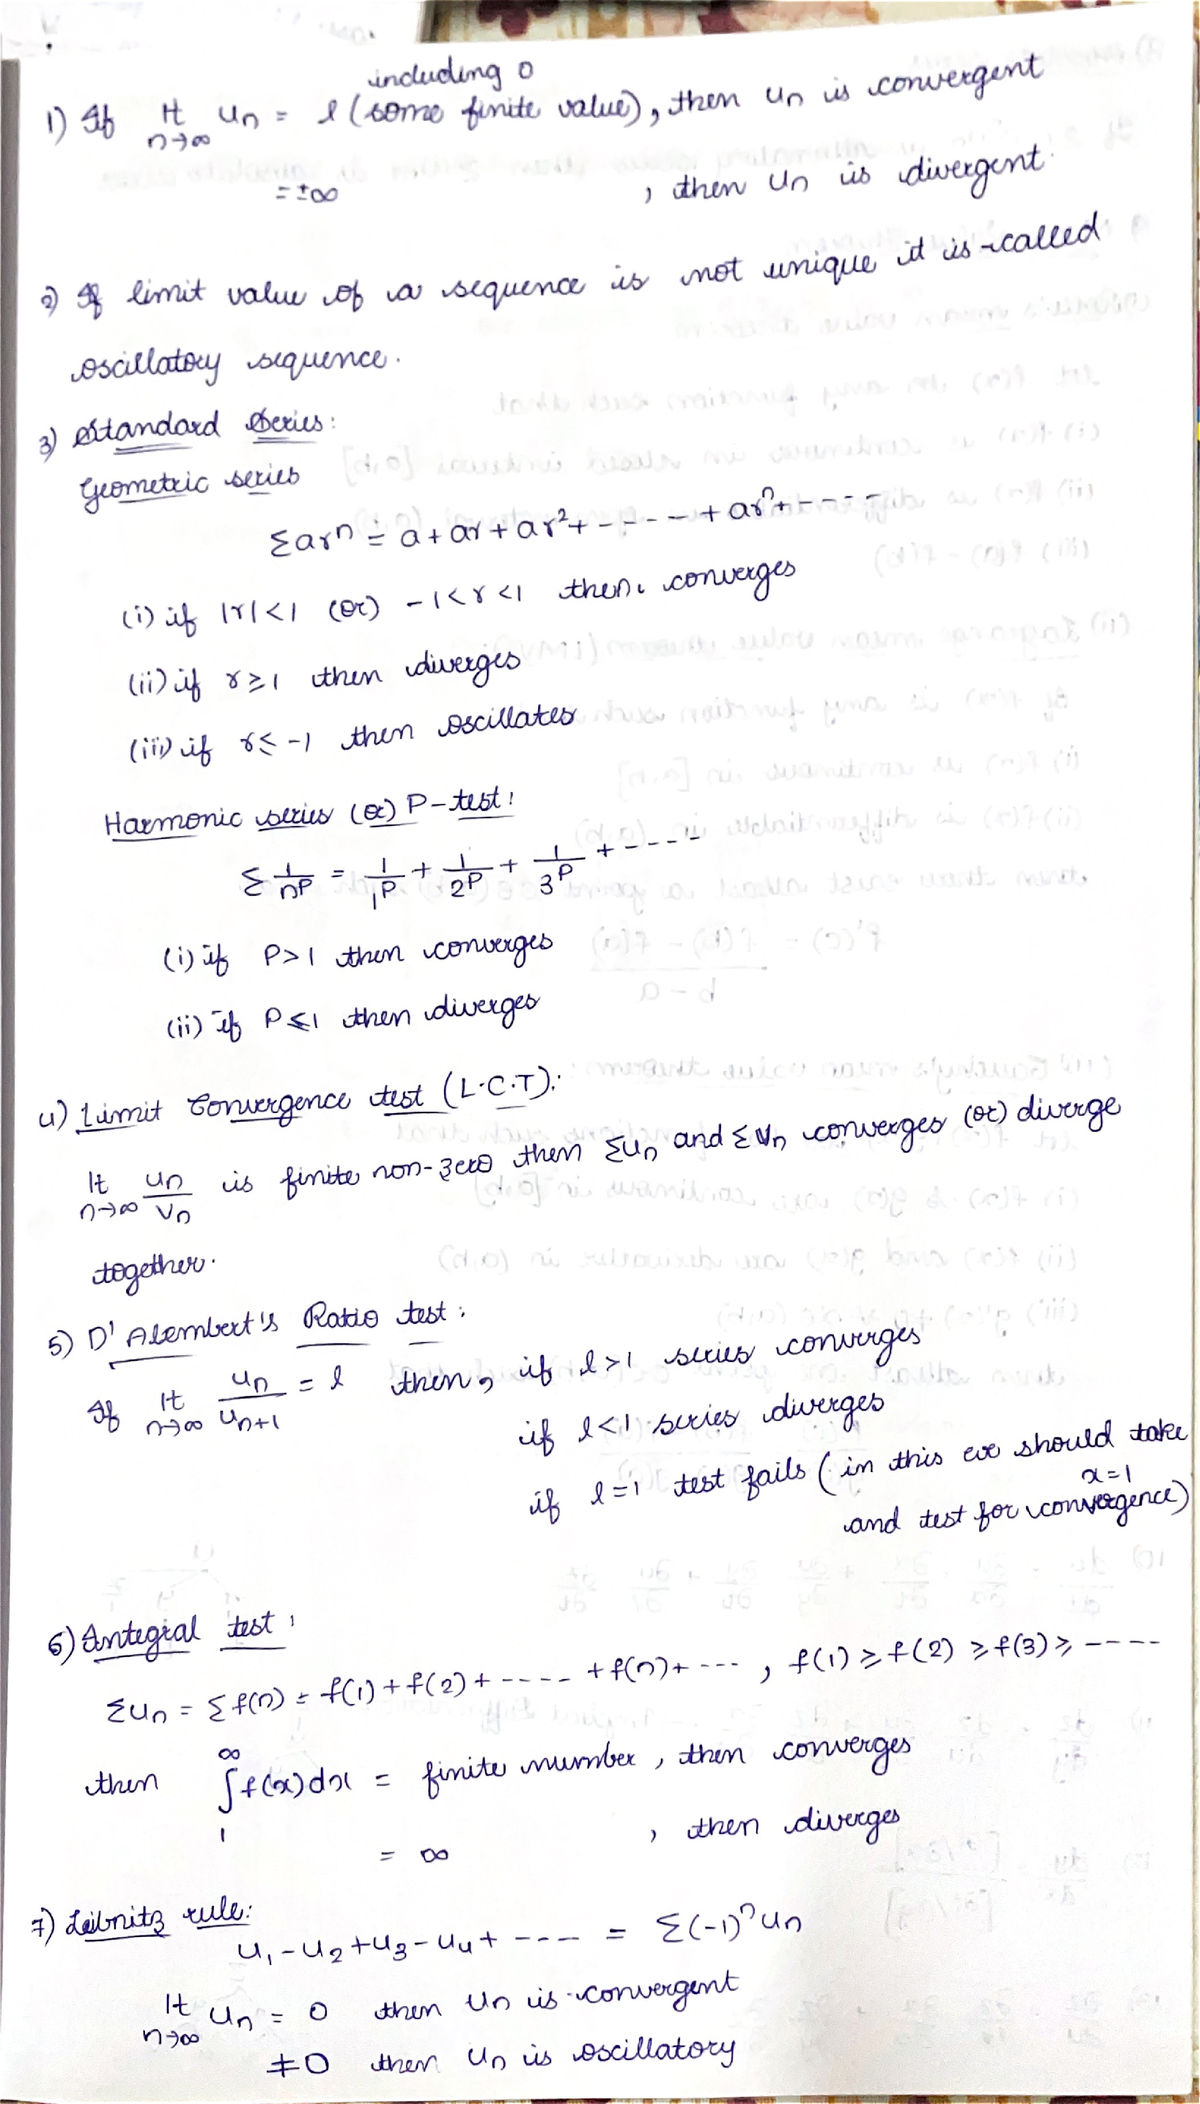 including 0
1) If lt n→∞ un = l (some finite value), then un is convergent
= ±∞ , then un is divergent.
2) If limit value of a sequence is not unique it is called
oscillatory sequence.
3) Standard Series:
Geometric series
Σarⁿ = a + ar + ar² + - - - - + arⁿ + - - - -
(i) if |r|<1 (or) -1<r<1 then converges
(ii) if r≥1 then diverges
(iii) if r≤-1 then oscillates
Harmonic series (or) P-test:
Σ 1/nᴾ = 1/1ᴾ + 1/2ᴾ + 1/3ᴾ + - - - -
(i) if P>1 then converges
(ii) if P≤1 then diverges
4) Limit Convergence test (L.C.T):
lt n→∞ un/vn is finite non-zero then Σun and Σvn converges (or) diverge
together.
5) D'Alembert's Ratio test:
If lt n→∞ un/un+1 = l then, if l>1 series converges
if l<1 series diverges
if l=1 test fails (in this we should take
x=1
and test for convergence)
6) Integral test:
Σun = Σf(n) = f(1)+f(2)+ - - - - +f(n)+ - - - , f(1)≥f(2)≥f(3)≥ - - - -
then ∫₁^∞ f(x)dx = finite number, then converges
= ∞ , then diverges
7) Leibnitz rule:
u1-u2+u3-u4+ - - - - = Σ(-1)ⁿun
lt n→∞ un = 0 then un is convergent
≠0 then un is oscillatory